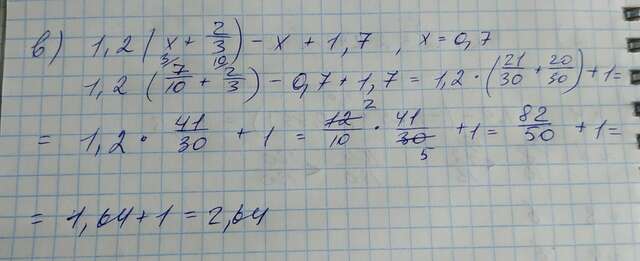 в) 1,2 (x + 2/3) - x + 1,7 , x = 0,7
1,2 (3/ 7/10 + 10/ 2/3) - 0,7 + 1,7 = 1,2 · (21/30 + 20/30) + 1 =
= 1,2 · 41/30 + 1 = 12 2/10 · 41/30 5 + 1 = 82/50 + 1 =
= 1,64 + 1 = 2,64